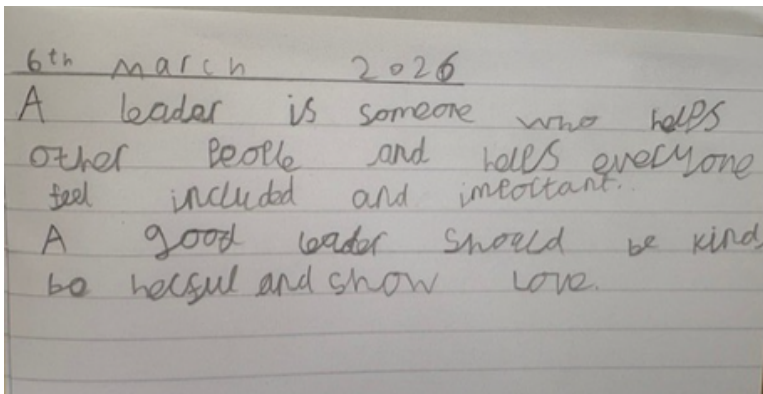 6th March 2026
A leader is someone who helps
other People and helps everyone
feel included and important..
A good leader should be kind
be helpful and show love.